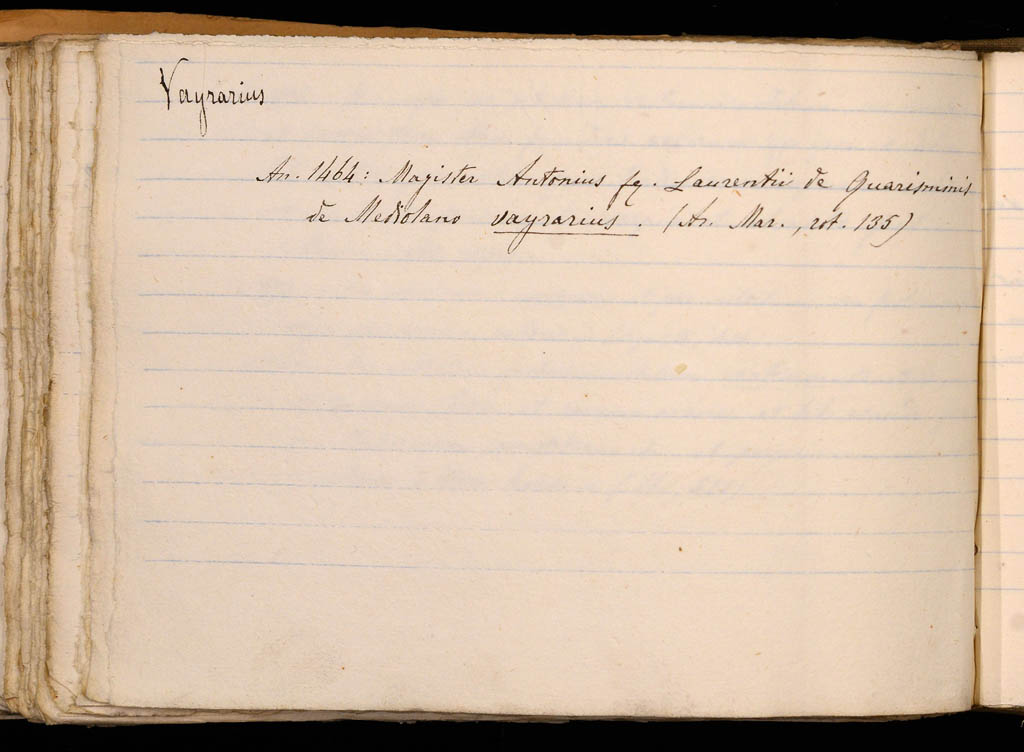 Vayrarius
An. 1464: Magister Antonius fq. Laurentii de Quarisminis
de Mediolano vayrarius. (Ar. Mar., rot. 135)